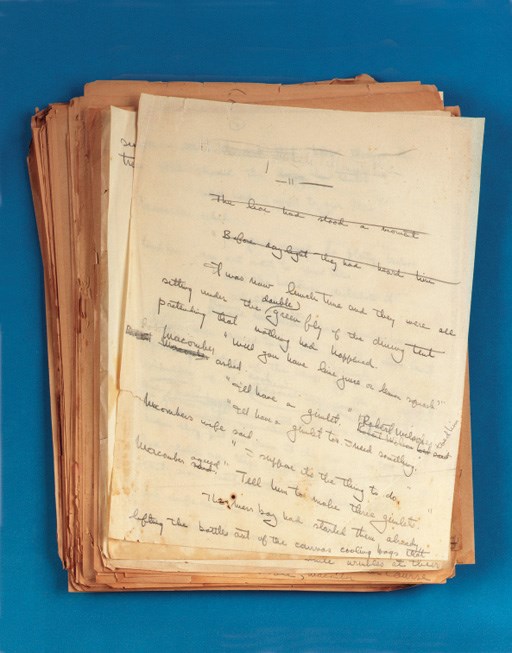 1
The lion had stood a moment
Before daylight they had heard him
It was now lunch time and they were all
sitting under the double green fly of the dining tent
pretending that nothing had happened.
"Will you have lime juice or lemon squash?"
Macomber asked.
"I'll have a gimlet," Robert Wilson told him
"I'll have a gimlet too. I need something,"
Macomber's wife said.
"I suppose it's the thing to do,"
Macomber agreed. "Tell him to make three gimlets."
The mess boy had started them already,
lifting the bottles out of the canvas cooling bags that